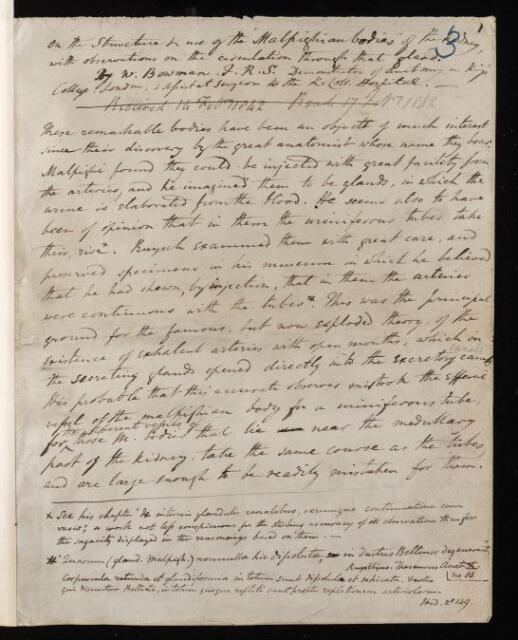 3
1
On the Structure & use of the "Malpighian bodies" of the Kidney,
with observations on the circulation through that gland.
By W. Bowman. F.R.S. Demonstrator of Anatomy in King's
College London, & Assist.t Surgeon to the K. Coll. Hospital.
Received 14 Feb.y 1842 Read 17 Feb.y 1842
These remarkable bodies have been an object of much interest
since their discovery by the great anatomist whose name they bear.
Malpighi found they could be injected with great facility from
the arteries, and he imagined them to be glands, in which the
urine is elaborated from the blood. He seems also to have
been of opinion that in them the uriniferous tubes take
their rise x. Ruysch examined them with great care, and
preserved specimens in his museum in which he believed
that he had shown, by injection, that in them the arteries
were continuous with the tubes #. This was the principal
ground for the famous, but now exploded theory, of the
existence of exhalent arteries with open mouths, which in
the secreting glands opened directly into the excretory canals
It is probable that this accurate observer mistook the efferent
vessel of the malpighian body for a uriniferous tube,
for the efferent vessels of those M. bodies that lie near the medullary
part of the kidney, take the same course as the tubes,
and are large enough to be readily mistaken for them.
x See his chapter "de internis glandulis renalibus, earumque continuatione cum
vasis", a work not less conspicuous for the striking accuracy of its observations than for
the sagacity displayed in the reasonings based on them.
# "Quarum (gland. malpigh.) nonnulla hic dissoluta, in ductus Bellinos degenerant"
Ruyschius: Thesaurus Anat.
no 86
Corpuscula rotunda et glandiformia in totum sunt dissoluta et
qui dicuntur Belliniani, in totum quoque repleti sunt praeter repletionem arteriolarum
Ibid. no 149.